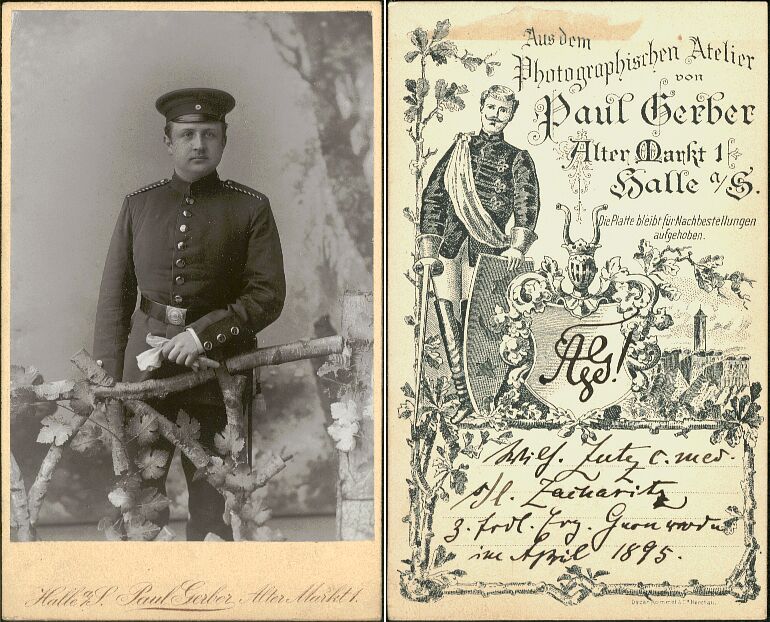 Halle a/S. Paul Gerber Alter Markt 1.
Aus dem
Photographischen Atelier
von
Paul Gerber
Alter Markt 1
Halle a/S.
Die Platte bleibt für Nachbestellungen
aufgehoben.
Wilh. Lutz c. med.
s/l. Zacharitz
z. frdl. Erg.
im April 1895.